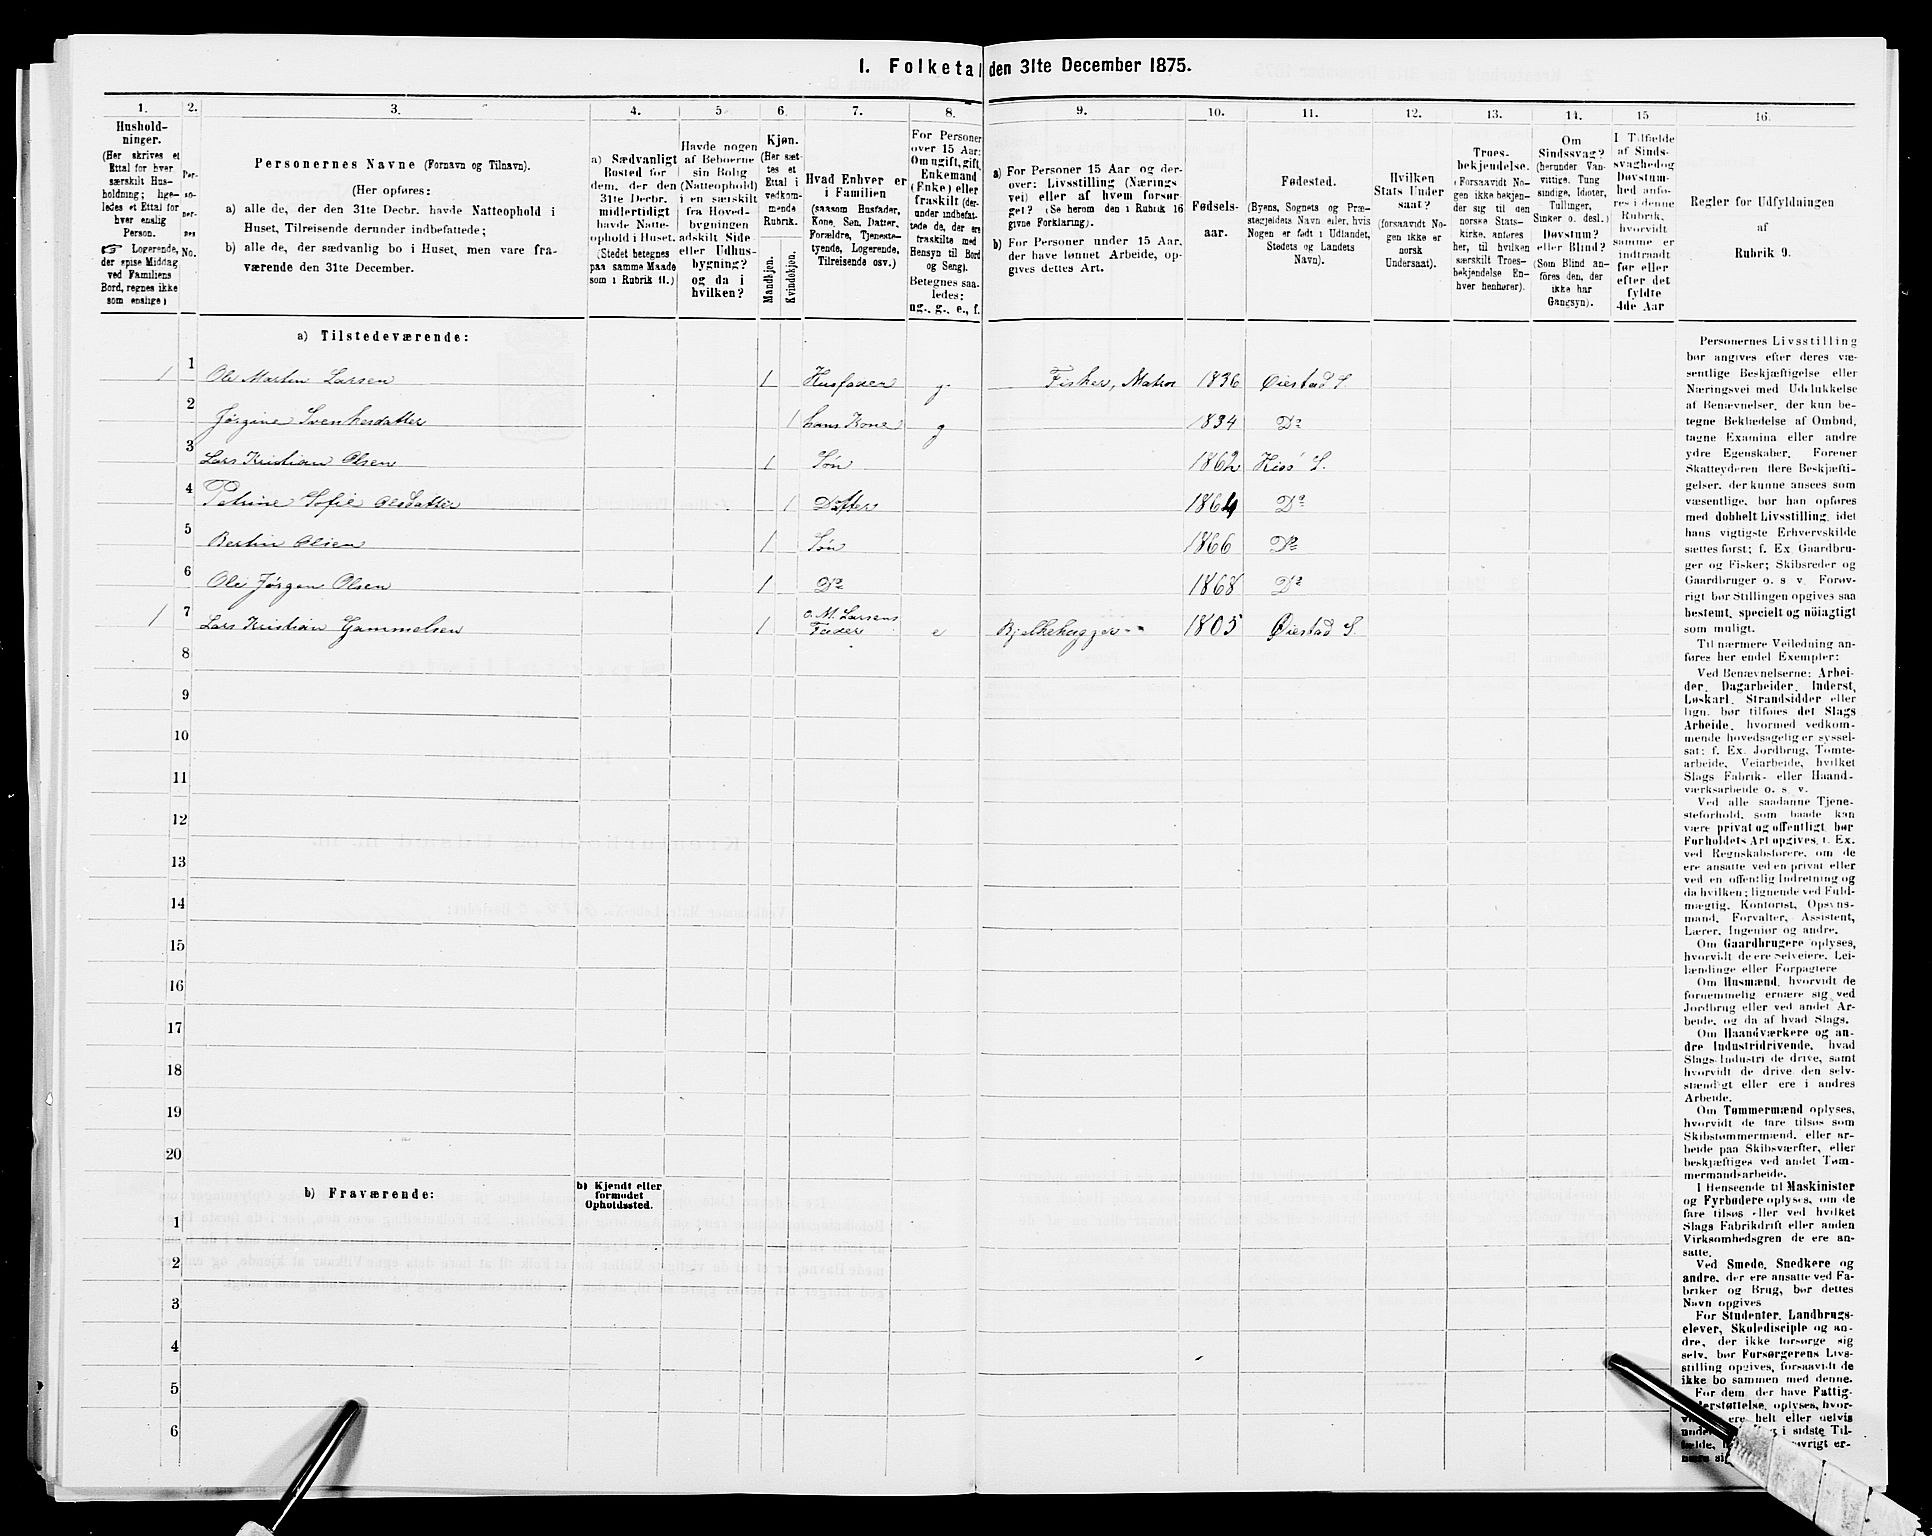 1. Folketal den 31te December 1875.
1.
2.
3.
4.
5.
6.
7.
8.
9.
10.
11.
12.
13.
14.
15
16.
Hushold-
ninger.
(Her skrives et
Ettal for hver
særskilt Hus-
holdning; lige-
ledes et Ettal for
hver enslig
Person.
☞ Logerende,
der spise Middag
ved Familiens
Bord, regnes ikke
som enslige)
Per-
so-
ner-
nes
No.
Personernes Navne (Fornavn og Tilnavn).
(Her opføres:
a) alle de, der den 31te Decbr. havde Natteophold i
Huset, Tilreisende derunder indbefattede;
b) alle de, der sædvanlig bo i Huset, men vare fra-
værende den 31te December.
a) Sædvanligt
Bosted for
dem, der den
31te Decbr.
midlertidigt
havde Natte-
ophold i Huset.
(Stedet betegnes
paa samme Maade
som i Rubrik 11.)
Havde nogen
af Beboerne
sin Bolig
(Natteophold)
i en særskilt
fra Hoved-
bygningen
adskilt Side-
eller Udhus-
bygning?
og da i
hvilken?
Kjøn.
(Her sæt-
tes et
Ettal i
vedkom-
mende
Rubrik.
Mandkjøn.
Kvindekjøn.
Hvad Enhver er
i Familien
(saasom Husfader,
Kone, Søn, Datter,
Forældre, Tjeneste-
tyende, Logerende,
Tilreisende osv.)
For Personer
over 15 Aar:
Om ugift, gift,
Enkemand
(Enke) eller
fraskilt (der-
under indbefat-
tede de, der ere
fraskilte med
Hensyn til Bord
og Seng).
Betegnes saa-
ledes:
ug., g., e., f.
a) For Personer 15 Aar og der-
over: Livsstilling (Nærings-
vei) eller af hvem forsør-
get? (Se herom den i Rubrik 16
givne Forklaring).
b) For Personer under 15 Aar,
der have lønnet Arbeide, op-
gives dettes Art.
Fødsels-
aar.
Fødested.
(Byens, Sognets og Præ-
stegjeldets Navn eller, hvis
Nogen er født i Udlandet,
Stedets og Landets
Navn).
Hvilken
Stats Under-
saat?
(forsaavidt No-
gen ikke er
norsk
Undersaat).
Troes-
bekjendelse.
(Forsaavidt No-
gen ikke bekjen-
der sig til den
norske Stats-
kirke, anføres
her, til hvilken
særskilt Troes-
bekjendelse En-
hver henhører).
Om
Sindssvag?
(herunder Van-
vittige, Tung-
sindige, Idioter,
Tullinger,
Sinker o. desl.)
Døvstum?
eller Blind?
(Som Blind an-
føres den, der
ikke har
Gangsyn).
I Tilfælde
af Sinds-
svaghed og
Døvstum-
hed anfø-
res i denne
Rubrik,
hvorvidt
samme er
indtraadt
før eller
efter det
fyldte
4de Aar
Regler for Udfyldningen
af
Rubrik 9.
a) Tilstedeværende:
1 1 Ole Martin Larsen 1 Husfader g. Fisker, Matros 1836 Øiestad S.
2 Jørgine Svenkesdatter 1 hans Kone g 1834 Do
3 Lars Kristian Olsen 1 Søn 1862 Hisö S.
4 Petrine Sofie Olsdatter 1 Datter 1864 Do
5 Bertin Olsen 1 Søn 1866 Do
6 Ole Jörgen Olsen 1 Do 1868 Do
1 7 Lars Kristian Gammelsen 1 O. M. Larsens
Fader e Bjelkehugger 1805 Øiestad S.
8
9
10
11
12
13
14
15
16
17
18
19
20
b) Fraværende:
b) Kjendt eller
formodet
Opholdssted.
1
2
3
4
5
6
Personernes Livsstilling
bør angives efter deres væ-
sentlige Beskjæftigelse eller
Næringsvei med Udelukkelse
af Benævnelser, der kun be-
tegne Beklædelse af Ombud,
tagne Examina eller andre
ydre Egenskaber. Forener
Skatteyderen flere Beskjæfti-
gelser, der kunne ansees som
væsentlige, bør han opføres
med dobbelt Livsstilling, idet
hans vigtigste Erhvervskilde
sættes først; f. Ex. Gaardbru-
ger og Fisker; Skibsreder og
Gaardbruger o. s. v. Forøv-
rigt bør Stillingen opgives saa
bestemt, specielt og nöiagtigt
som muligt.
Til nærmere Veiledning an-
føres her endel Exempler:
Ved Benævnelserne: Arbei-
der, Dagarbeider, Inderst,
Løskarl, Strandsidder eller
lign. bør tilføies det Slags
Arbeide, hvormed vedkom-
mende hovedsagelig er syssel-
sat; f. Ex. Jordbrug, Tomte-
arbeide, Veiarbeide, hvilket
Slags Fabrik- eller Haand-
værksarbeide o. s. v.
Ved alle saadanne Tjene-
steforhold, som baade kan
være privat og offentligt, bør
Forholdets Art opgives, f. Ex.
ved Regnskabsførere, om de
ere ansatte ved en privat eller
ved en offentlig Indretning og
da hvilken; lignende ved Fuld-
mægtig, Kontorist, Opsyns-
mand, Forvalter, Assistent,
Lærer, Ingeniør og andre.
Om Gaardbrugere oplyses,
hvorvidt de ere Selveiere, Lei-
lændinge eller Forpagtere
Om Husmænd, hvorvidt de
fornemmelig ernære sig ved
Jordbrug eller ved andet Ar-
beide, og da af hvad Slags.
Om Haandværkere og an-
dre Industridrivende, hvad
Slags Industri de drive, samt
hvorvidt de drive den selv-
stændigt eller ere i andres
Arbeide.
Om Tømmermænd oplyses,
hvorvidt de fare tilsøs som
Skibstømmermænd, eller ar-
beide paa Skibsværfter, eller
beskjæftiges ved andet Tøm-
mermandsarbeide.
I Henseende til Maskinister
og Fyrbødere oplyses, om de
fare tilsøs eller ved hvilket
Slags Fabrikdrift eller anden
Virksomhedsgren de ere an-
satte.
Ved Smede, Snedkere og
andre, der ere ansatte ved Fa-
briker og Brug, bør dettes
Navn opgives
For Studenter, Landbrugs-
elever, Skoledisciple og an-
dre, der ikke forsørge sig
selv, bør Forsørgerens Livs-
stilling opgives, forsaavidt de
ikke bo sammen med denne.
For dem, der have Fattig-
understøttelse, oplyses, hvor-
ere helt eller delvis
i sidste Til-
fælde,